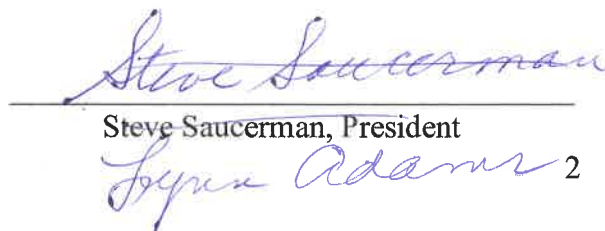 Steve Saucerman
Steve Saucerman, President
Lynn Adams 2